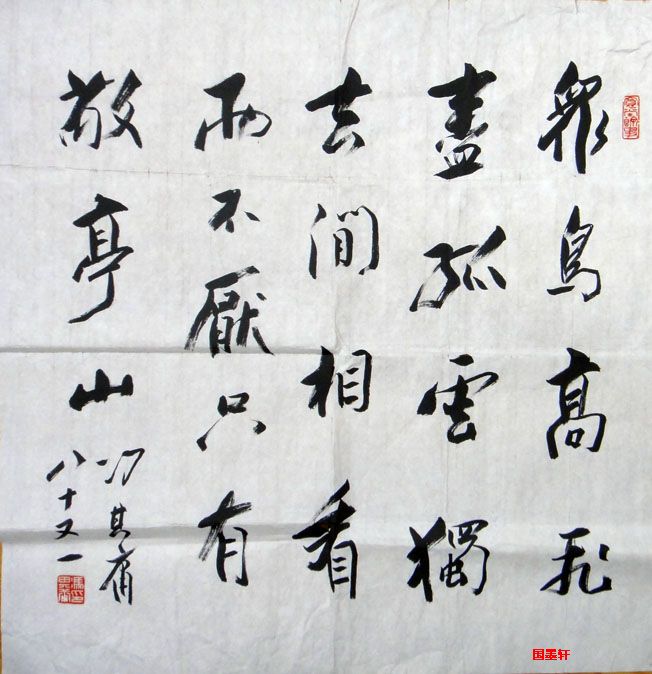 眾鳥高飛
盡孤雲獨
去閒相看
兩不厭只有
敬亭山
冯其庸
八十又一
国墨轩